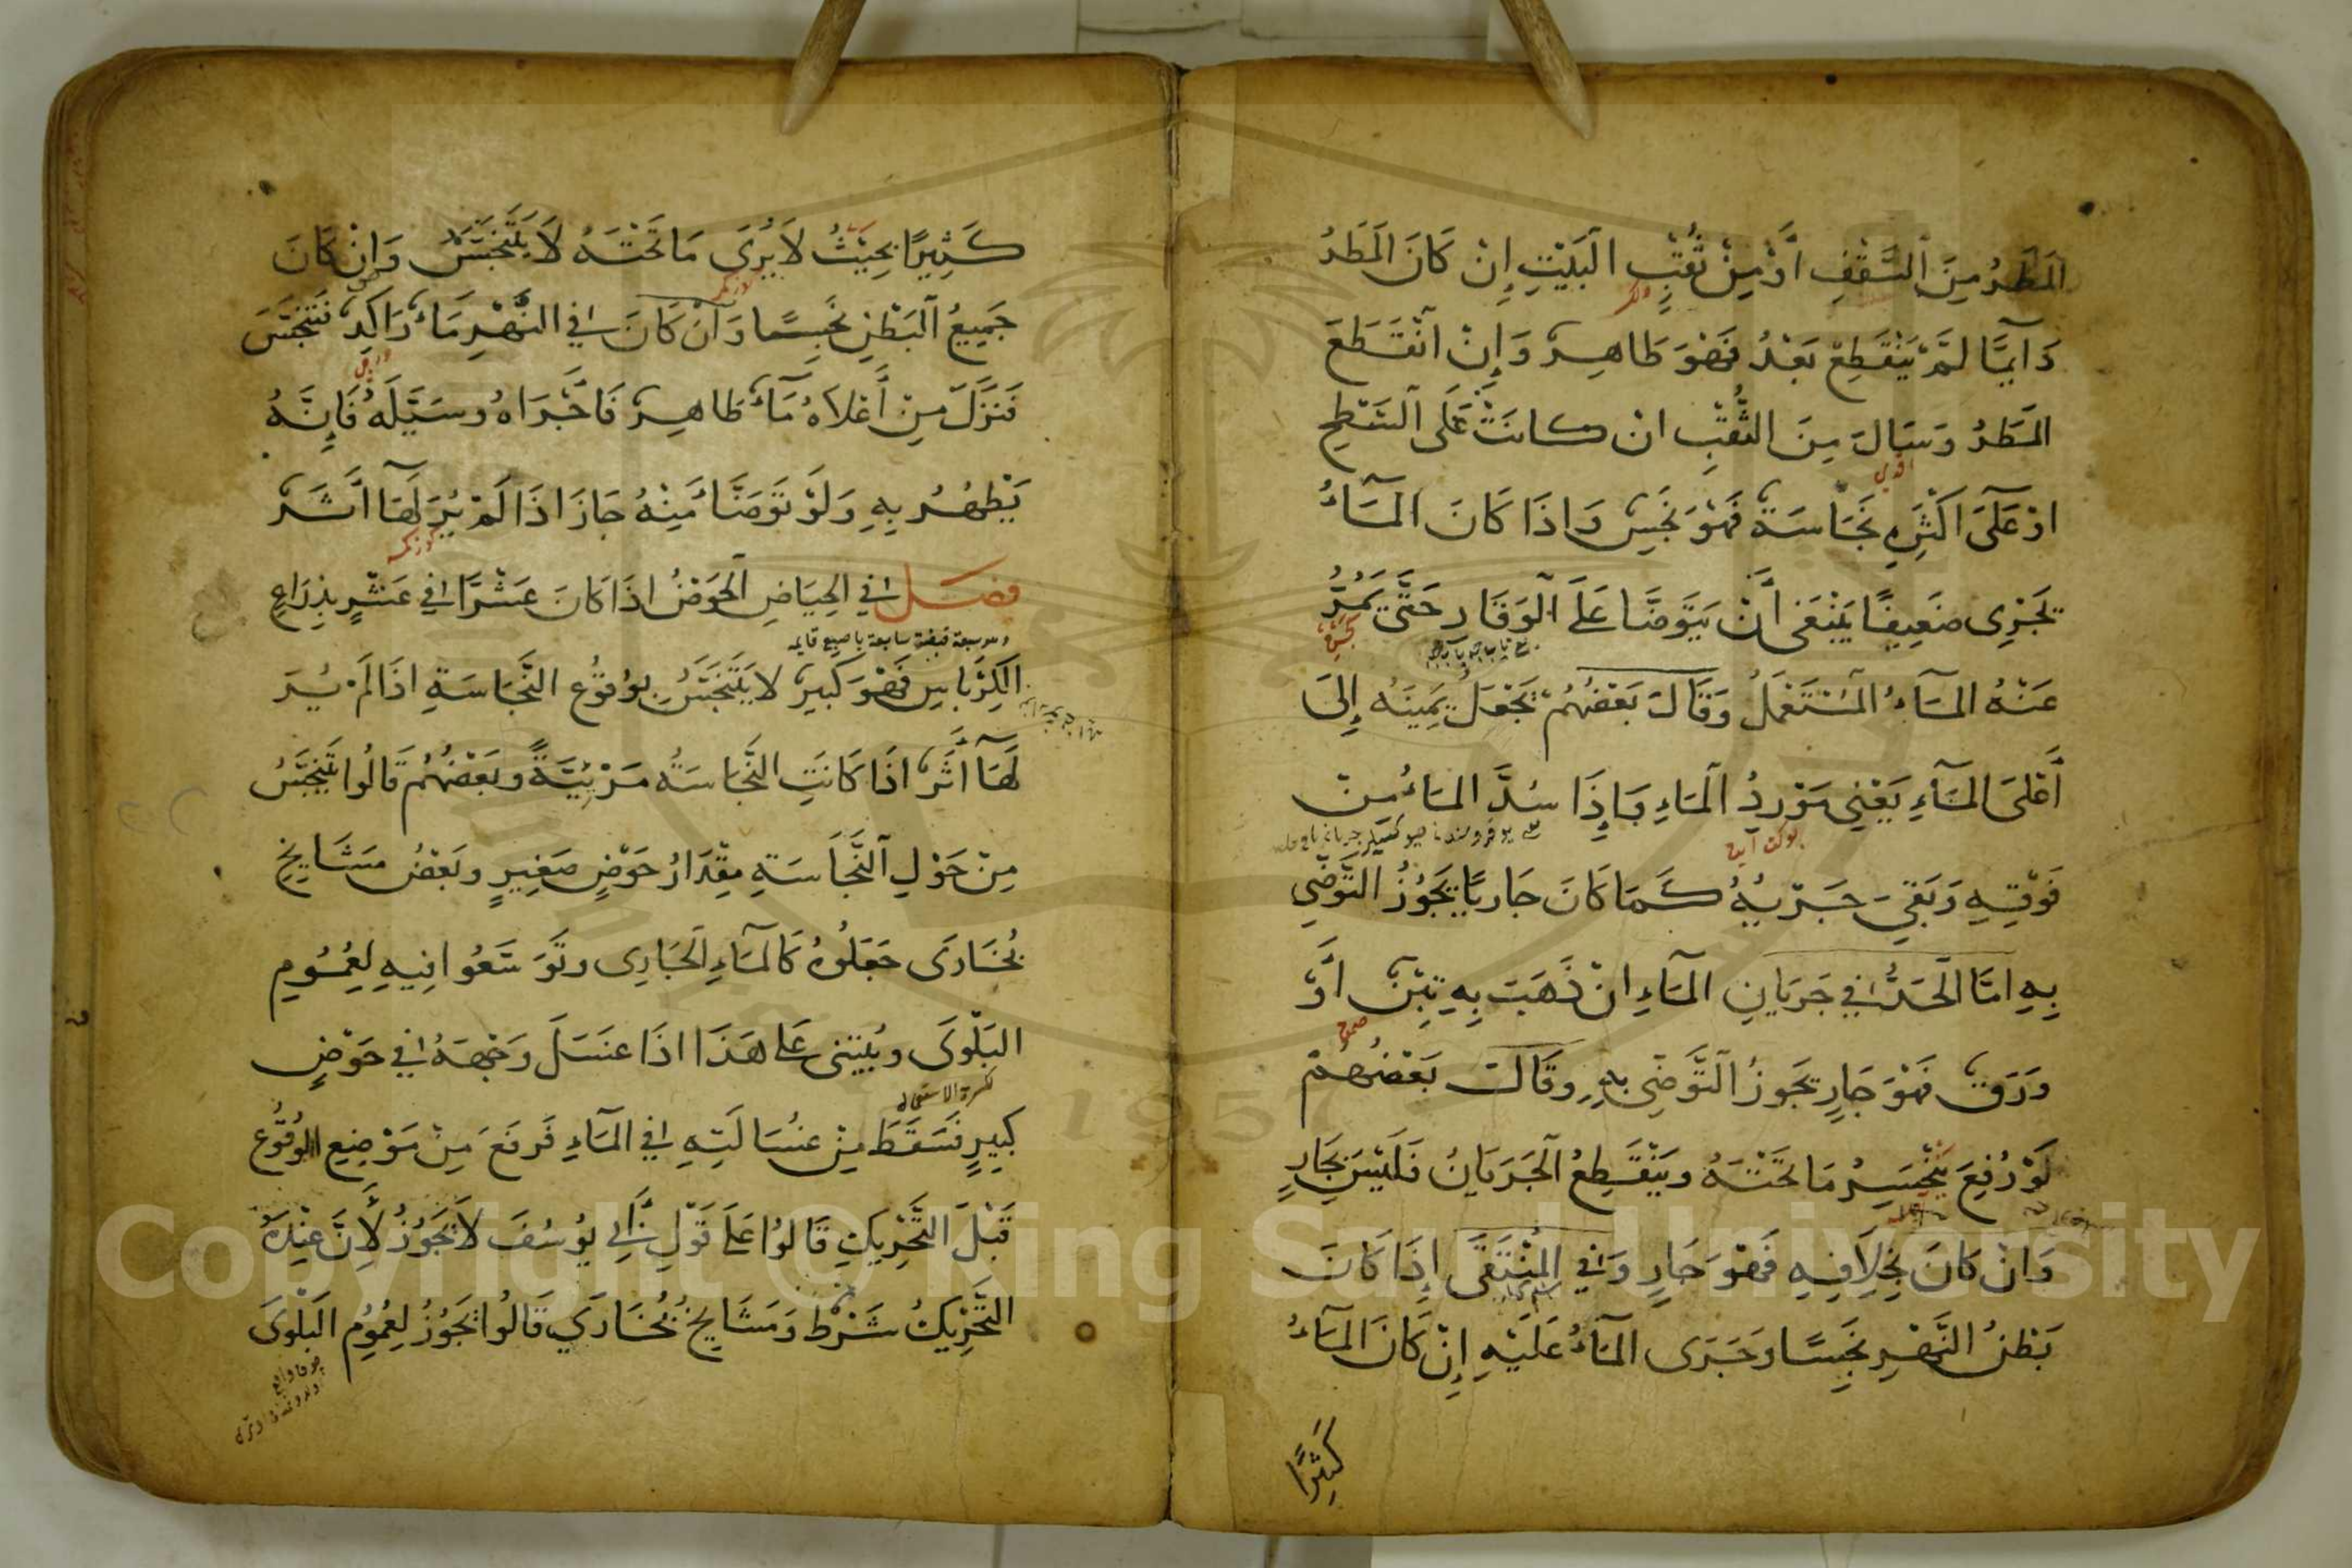 المَطَرُ مِنَ السَّقْفِ أَوْ مِنْ ثُقْبِ البَيْتِ إِنْ كَانَ المَطَرُ
دَآئِمًا لَمْ يَنْقَطِعْ بَعْدُ فَهُوَ طَاهِرٌ وَإِنْ انْقَطَعَ
المَطَرُ وَسَالَ مِنَ الثُّقْبِ ان كانَتْ عَلَى السَّطْحِ
اوْ عَلَى اَكْثَرِهِ نَجَاسَةٌ فَهُوَ نَجَسٌ وَاذَا كَانَ المَآءُ
يَجْرِى ضَعِيفًا يَنْبَغِى أَنْ يَتَوَضَّا عَلَى الوَقَارِ حَتَّى يَمُرَّ
عَنْهُ المَآءُ المُسْتَعْمَلُ وَقَالَ بَعْضُهُمْ يَجْعَلُ يَمِينَهُ إِلىَ
أَعْلَى المَآءِ يَعْنِى مَوْرِدُ المَاءِ وَإِذَا سُدَّ المَاءُ مِنْ
فَوْقِهِ وَبَقِىَ جَرْيُهُ كَمَا كَانَ جَارِيًا يَجُوزُ التَّوَضِّى
بِهِ امَّا الحَدُّ فِي جَرَيَانِ المَآءِ انْ ذَهَبَ بِهِ تِبْنٌ اَوْ
وَرَقٌ فَهُوَ جَارٍ يَجُوزُ التَّوَضِّى بِهِ وقَالَ بَعْضُهُمْ
لَوْ رُفِعَ يَنْحَسِرُ مَا تَحْتَهُ وَيَنْقَطِعُ الجَرَيَانُ فَلَيْسَ بِجَارٍ
وَانْ كَانَ بِخِلَافِهِ فَهُوَ جَارٍ وَفِي المُنْتَقَى إِذَا كَانَ
بَطْنُ النَّهْرِ نَجِسًا وجَرَى المَآءُ عَلَيْهِ إِنْ كَانَ المَآءُ
كَثِيرًا
كَثِيرًا بِحَيْثُ لاَ يُرَى مَا تَحْتَهُ لاَ يَتَنَجَّسُ وَانْ كَانَ
جَمِيعُ البَطْنِ نَجِسًا وَانْ كَانَ فِي النَّهْرِ مَاءٌ رَاكِدٌ فَتَنَجَّسَ
فَنَزَلَ مِنْ أَعْلاَهُ مَآءٌ طَاهِرٌ فَاَجْرَاهُ وسَيَّلَهُ فَإِنَّهُ
يَطْهُرُ بِهِ وَلَوْ تَوَضَّأَ مِنْهُ جَازَ اذَا لَمْ يُرَ لَهَا اَثَرٌ
فصل فِي الحِيَاضِ الحَوْضُ اذَا كَانَ عَشْرًا فِي عَشْرٍ بِذِرَاعِ
الكِرْبَاسِ فَهُوَ كَبِيرٌ لا يَتَنَجَّسُ بِوُقُوعِ النَّجَاسَةِ اذَا لَمْ يُرَ
لَهَا أَثَرٌ اذَا كَانَتِ النَّجَاسَةُ مَرْئِيَّةً وبَعْضُهُم قَالُوا يَتَنَجَّسُ
مِنْ حَوْلِ النَّجَاسَةِ مِقْدَارُ حَوْضٍ صَغِيرٍ وبَعْضُ مَشَايِخِ
بُخَارَى جَعَلُوهُ كَالمَآءِ الجَارِى وتَوَسَّعُوا فِيهِ لِعُمُومِ
البَلْوَى ويُبْتَنى عَلى هَذَا اذَا غَسَلَ وَجْهَهُ فِي حَوْضٍ
كَبِيرٍ فَسَقَطَ مِنْ غُسَالَتِهِ فِي المَآءِ فَرَفَعَ مِنْ مَوْضِعِ الوُقُوعِ
قَبْلَ التَّحْرِيكِ قَالُوا عَلَى قَوْلِ أَبِي يُوسُفَ لاَ يَجُوزُ لِأَنَّ عِنْدَهُ
التَّحْرِيكُ شَرْطٌ وَمَشَايِخُ بُخَارَي قَالُوا يَجُوزُ لِعُمُومِ البَلْوىَ
Copyright © King Saud University
1957